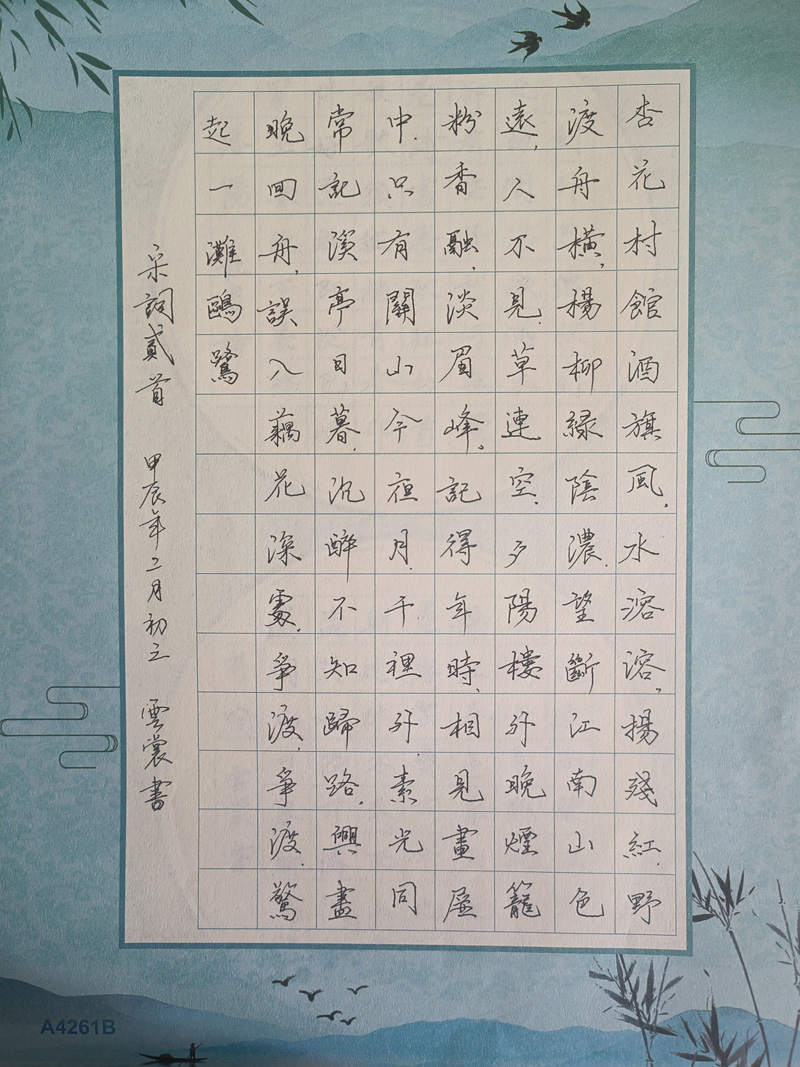 杏花村館酒旗風，水溶溶，揚殘紅，野
渡舟橫，楊柳綠陰濃，望斷江南山色
遠，人不見，草連空，夕陽樓外晚煙籠
粉香融，淡眉峰。記得年時，相見畫屏
中，只有關山今夜月，千裡外，素光同
常記溪亭日暮，沉醉不知歸路，興盡
晚回舟，誤入藕花深處，爭渡，爭渡，驚
起一灘鷗鷺
宋詞貳首 甲辰年二月初三 雲裳書
A4261B